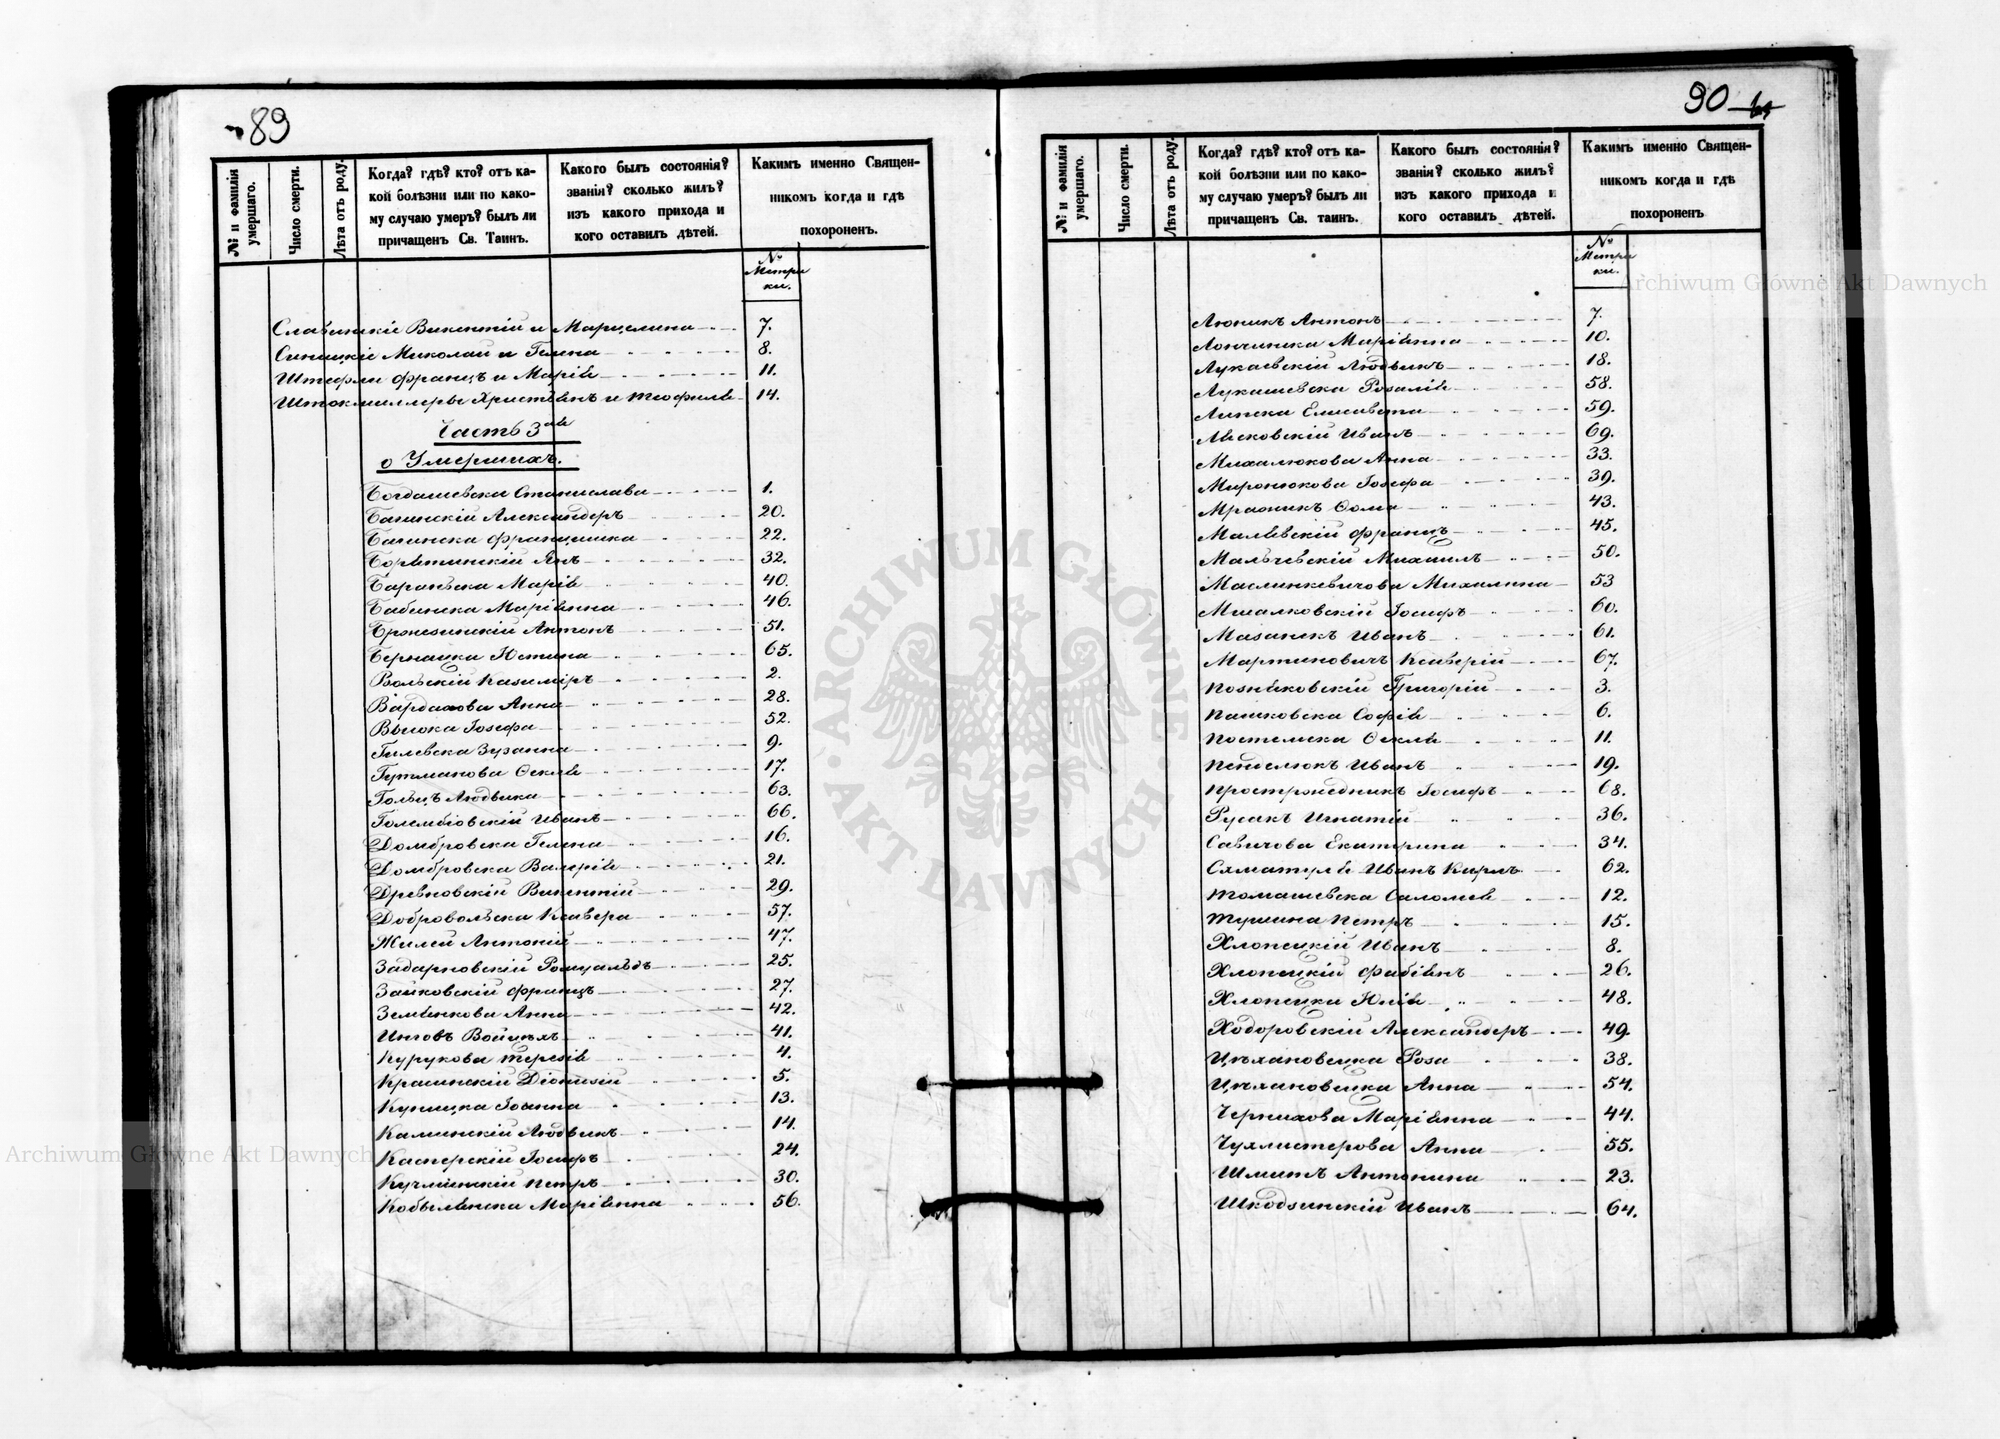 89
№ и фамилія умершаго.
Число смерти.
Лѣта отъ роду.
Когда? гдѣ? кто? отъ ка-
кой болѣзни или по како-
му случаю умеръ? былъ ли
причащенъ Св. Таинъ.
Какого былъ состоянія?
званія? сколько жилъ?
изъ какого прихода и
кого оставилъ дѣтей.
Какимъ именно Священ-
никомъ когда и гдѣ
похороненъ.
№
Метри
ки.
Славинскіе Викентій и Марцелина 7.
Синицкіе Миколай и Гелена 8.
Штефли Францъ и Марія 11.
Штокмиллеры Христіанъ и Теофиля 14.
Часть 3ая
о Умершихъ.
Богдашевска Станислава 1.
Багинскій Александеръ 20.
Багинска Францишка 22.
Янъ 32.
Бараньска Марія 40.
Бабинска Маріянна 46.
Бржезинскій Антонъ 51.
Бернацка Юстина 65.
Вольскій Казиміръ 2.
Вардахова Анна 28.
Высока Іозефа 52.
Гилевска Зузанна 9.
Гутманова Ѳекля 17.
Гольцъ Людвика 63.
Голембіовскій Иванъ 66.
Домбровска Гелена 16.
Домбровска Валерія 21.
Древновскій Викентій 29.
Добровольска Ксавера 57.
Жилей Антоній 47.
Задарновскій Ромуальдъ 25.
Зайковскій Францъ 27.
Земянкова Анна 42.
Войцѣхъ 41.
Курукова Терезія 4.
Красинскій Діонизій 5.
Куницка Іоанна 13.
Каминскій Людвикъ 14.
Касперскій Іосифъ 24.
Кучминскій Петръ 30.
Кобылянска Маріянна 56.
90
№ и фамилія умершаго.
Число смерти.
Лѣта отъ роду.
Когда? гдѣ? кто? отъ ка-
кой болѣзни или по како-
му случаю умеръ? былъ ли
причащенъ Св. таинъ.
Какого былъ состоянія?
званія? сколько жилъ?
изъ какого прихода и
кого оставилъ дѣтей.
Какимъ именно Священ-
никомъ когда и гдѣ
похороненъ
№
Метри
ки.
Люникъ Антонъ 7.
Лончинска Маріянна 10.
Лукаевскій Людвикъ 18.
Лукашевска Розалія 58.
Липска Елисавета 59.
Лясковскій Иванъ 69.
Михалюкова Анна 33.
Миронюкова Іозефа 39.
Мрозикъ Ѳома 43.
Малевскій Францъ 45.
Мальчевскій Михаилъ 50.
Маслинкевичова Михалина 53
Мигалковскій Іосифъ 60.
Мазанекъ Иванъ 61.
Мартиновичъ Ксаверій 67.
Позняковскій Григорій 3.
Пашковска Софія 6.
Постельска Ѳекля 11.
Пенделюкъ Иванъ 19.
Простропедникъ Іосифъ 68.
Русакъ Игнатій 36.
Савичова Екатерина 34.
Сяматуля Иванъ Карлъ 62.
Томашевска Саломея 12.
Тушина Петръ 15.
Хлопецкій Иванъ 8.
Хлопецкій Фабіянъ 26.
Хлопецка Юлія 48.
Ходоровскій Александеръ 49.
Цѣхановецка Роза 38.
Цѣхановецка Анна 54.
Черняхова Маріянна 44.
Чухлистерова Анна 55.
Шмитъ Антонина 23.
Шкодзинскій Иванъ 64.
Archiwum Główne Akt Dawnych
Archiwum Główne Akt Dawnych
ARCHIWUM GŁÓWNE
AKT DAWNYCH